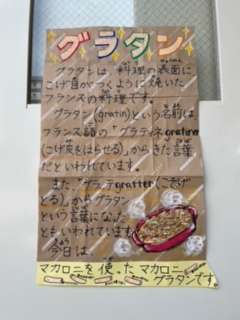 グラタン
グラタンは、料理の表面に
こげ目がつくように焼いた
フランスの料理です。
グラタン(gratin)という名前は
フランス語の「グラティネgratiner
(こげ皮をはらせる)」からきた言葉
だといわれています。
また、「グラッテgratter(こそげ
とる)」からグラタン
という言葉になった
ともいわれています。
今日は、
マカロニを使ったマカロニ
グラタンです。